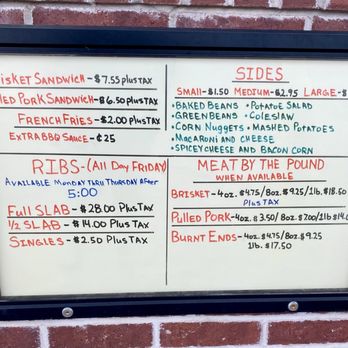 SANDWICH-$7.55 PLUS TAX
PORK SANDWICH-$6.50 PLUS TAX
FRENCH FRIES-$2.00 PLUS TAX
EXTRA BBQ SAUCE-¢25
SIDES
SMALL-$1.50 MEDIUM-$2.95 LARGE-$
•BAKED BEANS •POTATOE SALAD
•GREEN BEANS •COLESLAW
•CORN NUGGETS •MASHED POTATOES
•MACARONI AND CHEESE
•SPICEY CHEESE AND BACON CORN
RIBS-(All Day FRIDAY)
AVAILABLE MONDAY THRU THURSDAY AFTER
5:00
Full SLAB-$28.00 Plus TAX
½ SLAB-$14.00 Plus TAX
SINGLES-$2.50 Plus TAX
MEAT BY THE POUND
WHEN AVAILABLE
BRISKET-4oz. $4.75/8oz. $9.25/1lb. $18.50
Plus TAX
Pulled PORK-4oz. $3.50/8oz. $7.00/1lb $14.0
BURNT ENDS-4oz. $4.75/8oz. $9.25
1lb. $17.50